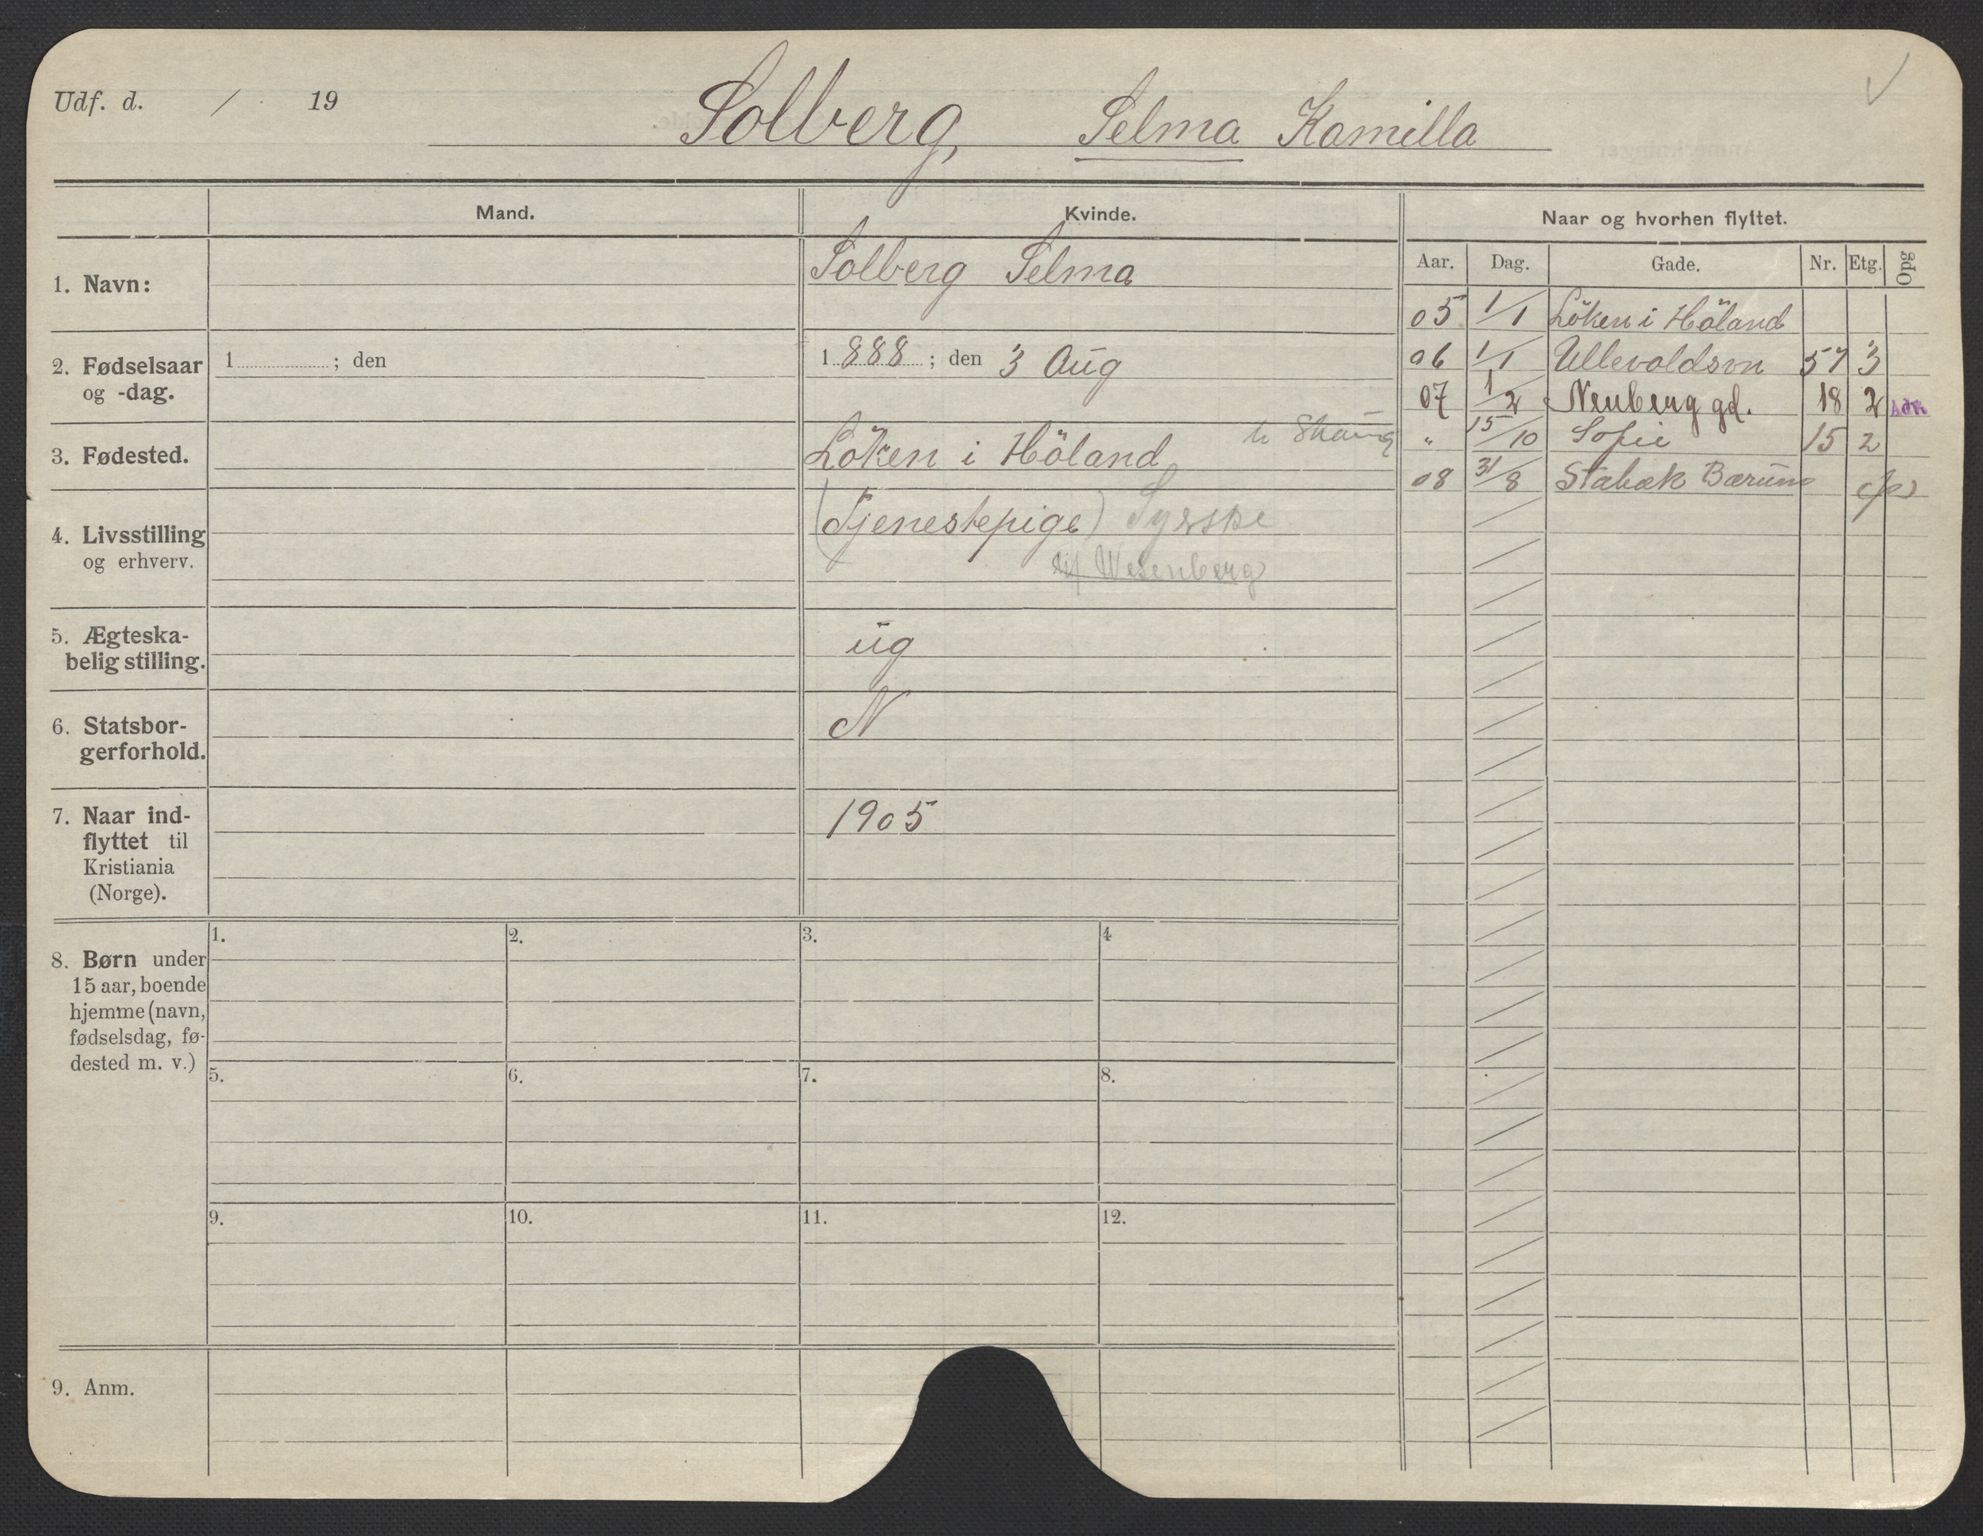 Udf. d. / 19
Solberg, Selma Kamilla
Mand.
Kvinde.
Naar og hvorhen flyttet.
Aar. Dag. Gade. Nr. Etg. Opg
1. Navn:
Solberg Selma
05 1/1 Löken i Höland
06 1/1 Ullevoldsvn 57 3
07 1/2 Neuberg gd. 18 2
" 15/10 Sofie 15 2
08 31/8 Stabæk Bærum
2. Fødselsaar
og -dag.
1 ; den
1 888 ; den 3 Aug
3. Fødested.
Löken i Höland
4. Livsstilling
og erhverv.
(Tjenestepige) Syerske
Wesenberg
5. Ægteska-
belig stilling.
ug
6. Statsbor-
gerforhold.
N
7. Naar ind-
flyttet til
Kristiania
(Norge).
1905
8. Børn under
15 aar, boende
hjemme (navn,
fødselsdag, fø-
dested m. v.)
1. 2. 3. 4
5. 6. 7. 8.
9. 10. 11. 12.
9. Anm.